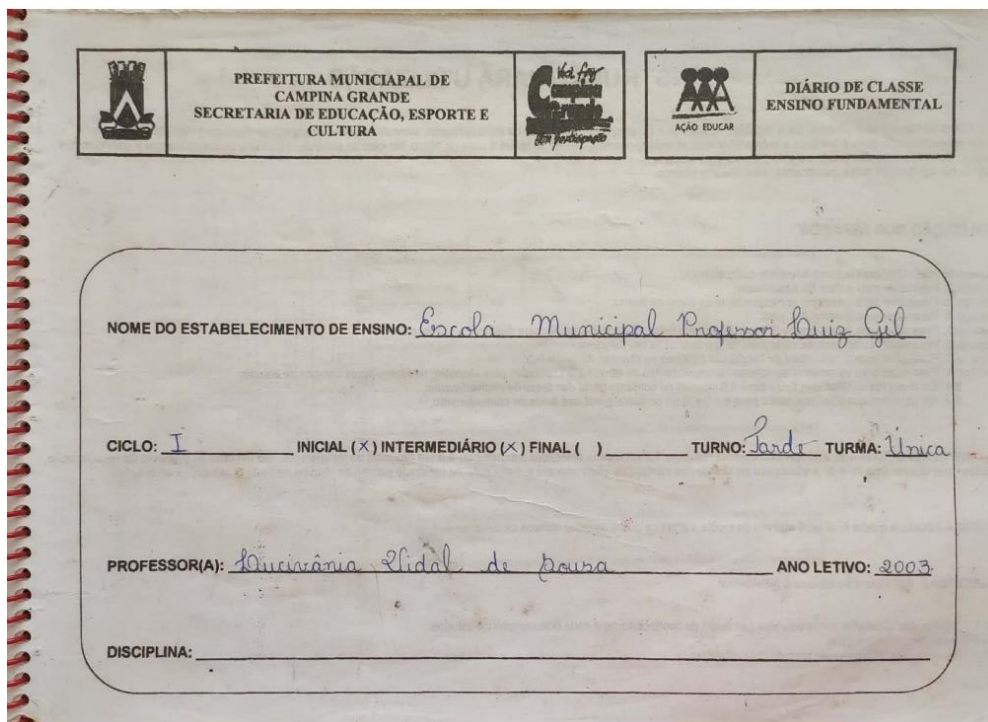 PREFEITURA MUNICIAPAL DE
CAMPINA GRANDE
SECRETARIA DE EDUCAÇÃO, ESPORTE E
CULTURA
Você faz
Campina
Grande
AÇÃO EDUCAR
DIÁRIO DE CLASSE
ENSINO FUNDAMENTAL
NOME DO ESTABELECIMENTO DE ENSINO: Escola Municipal Professor Luiz Gil
CICLO: I INICIAL (X) INTERMEDIÁRIO (X) FINAL ( ) TURNO: Tarde TURMA: Única
PROFESSOR(A): Lucivânia Vidal de Sousa ANO LETIVO: 2003
DISCIPLINA: